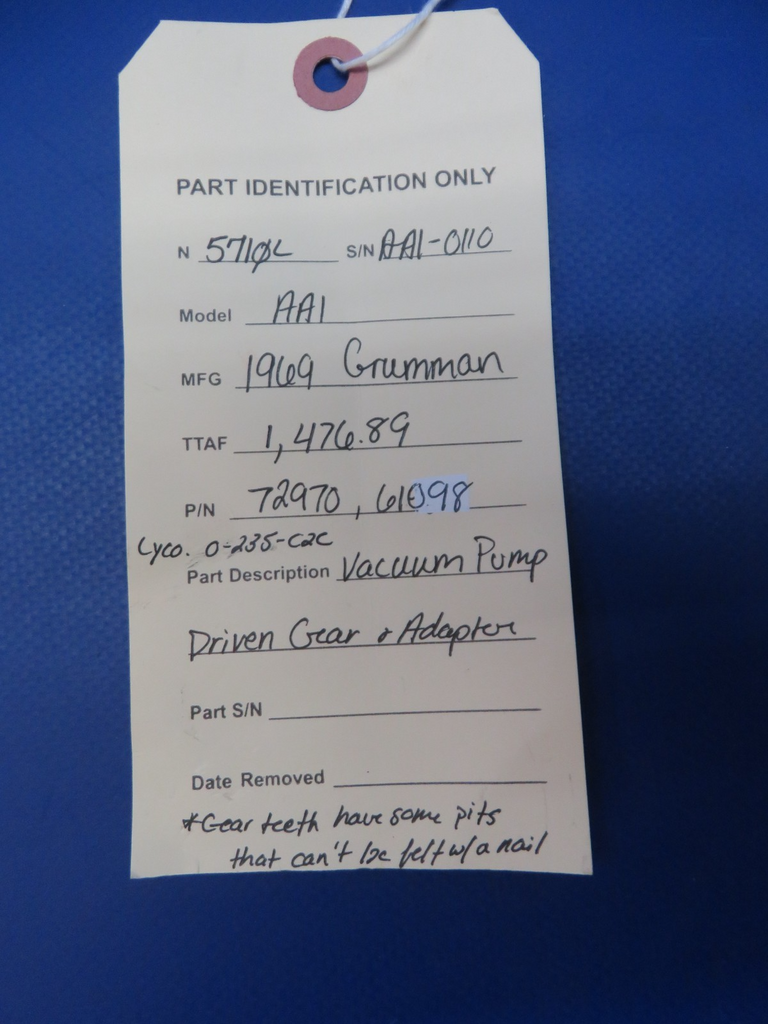 PART IDENTIFICATION ONLY
N 5710L S/N AA1-0110
Model AA1
MFG 1969 Grumman
TTAF 1,476.89
P/N 72970, 61098
Lyco. O-235-C2C
Part Description Vacuum Pump
Driven Gear & Adapter
Part S/N
Date Removed
*Gear teeth have some pits
that can't be felt w/ a nail